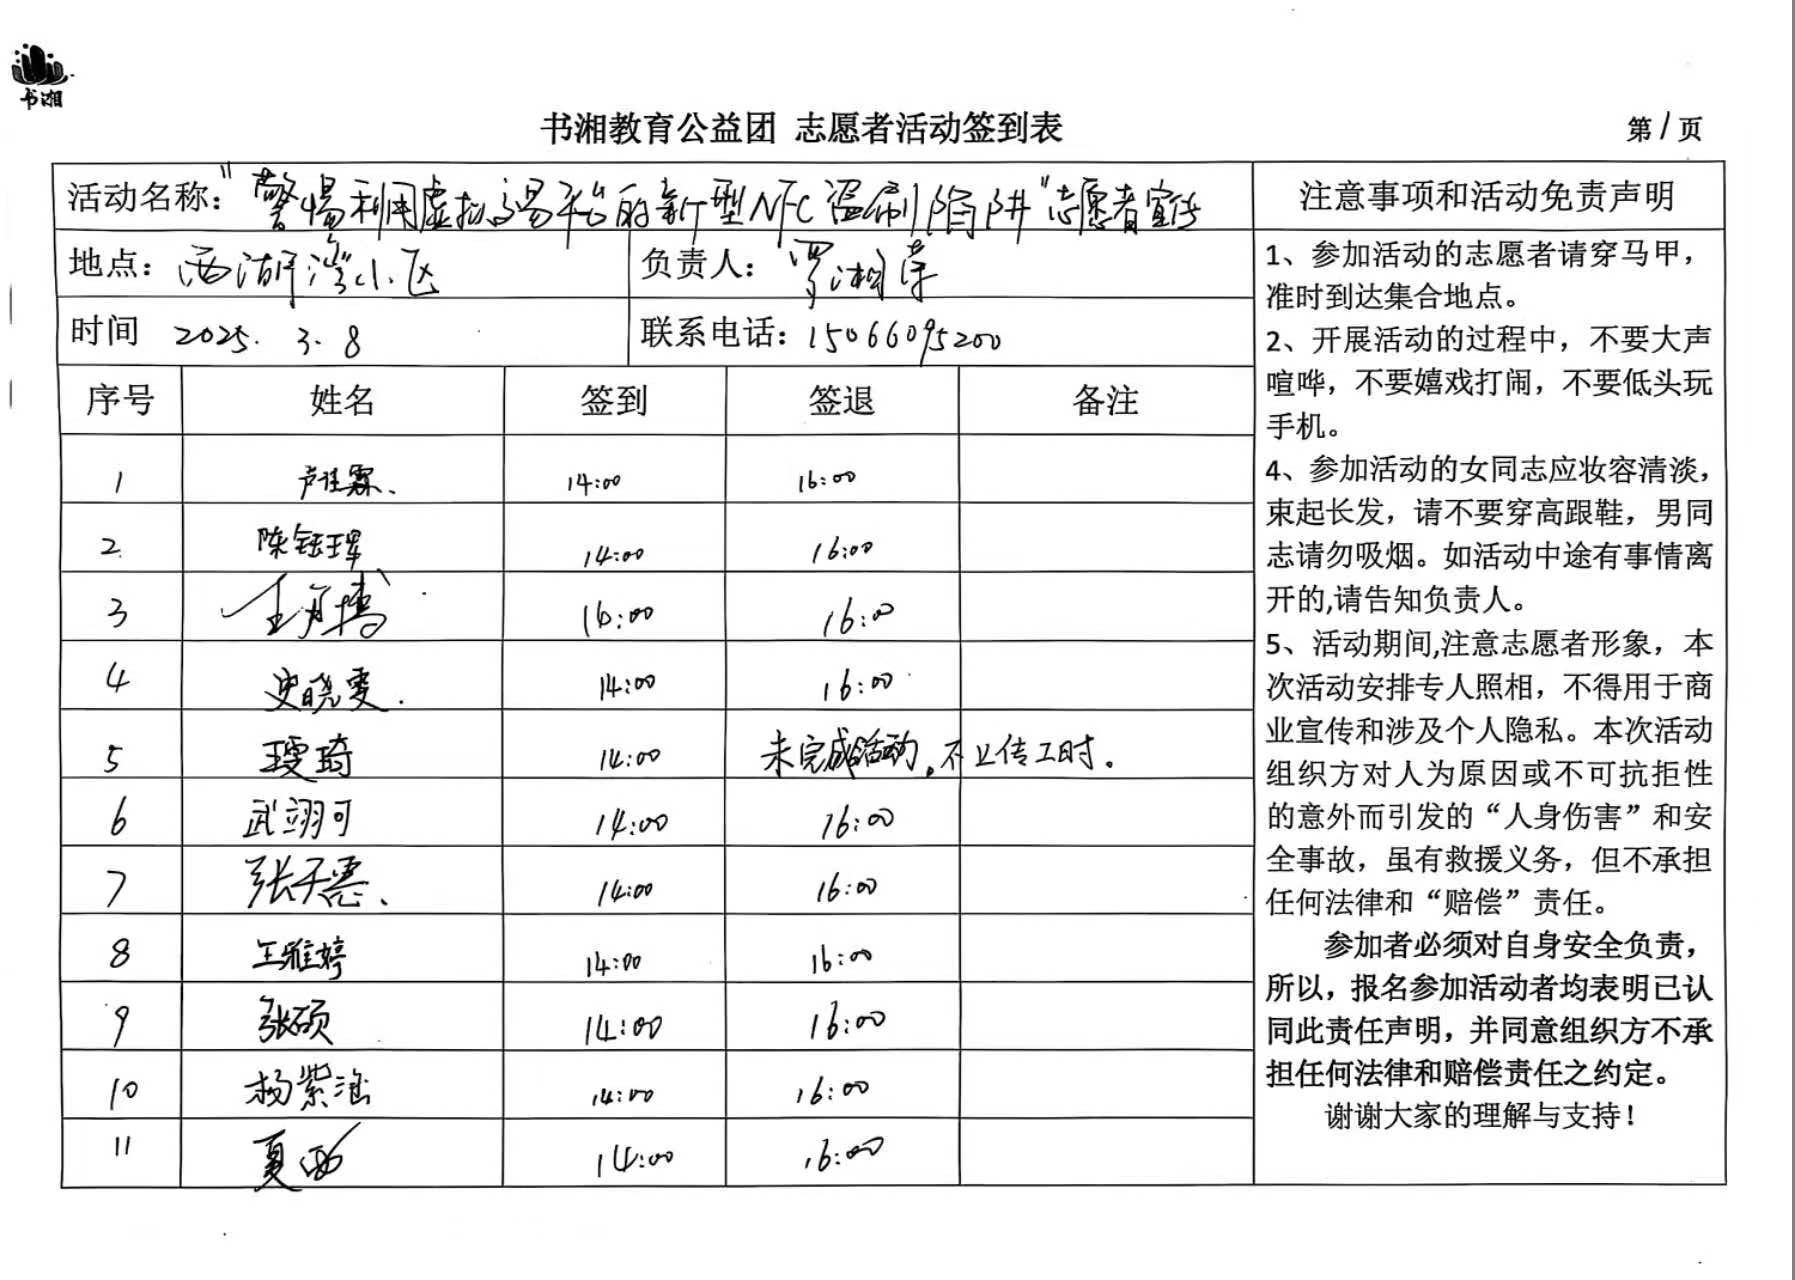 书湘
书湘教育公益团 志愿者活动签到表
第1页
活动名称：“警惕利用虚拟交易平台的新型NFC盗刷陷阱”志愿者宣传
地点：西湖湾小区
负责人：罗湘萍
时间 2025.3.8
联系电话：15066095200
序号 姓名 签到 签退 备注
1 卢佳霖 14:00 16:00
2 陈钰珲 14:00 16:00
3 王彦博 14:00 16:00
4 史晓雯 14:00 16:00
5 14:00 未完成活动。不上传工时。
6 武翊可 14:00 16:00
7 张天惠 14:00 16:00
8 王雅婷 14:00 16:00
9 张硕 14:00 16:00
10 杨紫涵 14:00 16:00
11 夏 14:00 16:00
注意事项和活动免责声明
1、参加活动的志愿者请穿马甲，
准时到达集合地点。
2、开展活动的过程中，不要大声
喧哗，不要嬉戏打闹，不要低头玩
手机。
4、参加活动的女同志应妆容清淡，
束起长发，请不要穿高跟鞋，男同
志请勿吸烟。如活动中途有事情离
开的,请告知负责人。
5、活动期间,注意志愿者形象，本
次活动安排专人照相，不得用于商
业宣传和涉及个人隐私。本次活动
组织方对人为原因或不可抗拒性
的意外而引发的“人身伤害”和安
全事故，虽有救援义务，但不承担
任何法律和“赔偿”责任。
参加者必须对自身安全负责，
所以，报名参加活动者均表明已认
同此责任声明，并同意组织方不承
担任何法律和赔偿责任之约定。
谢谢大家的理解与支持！